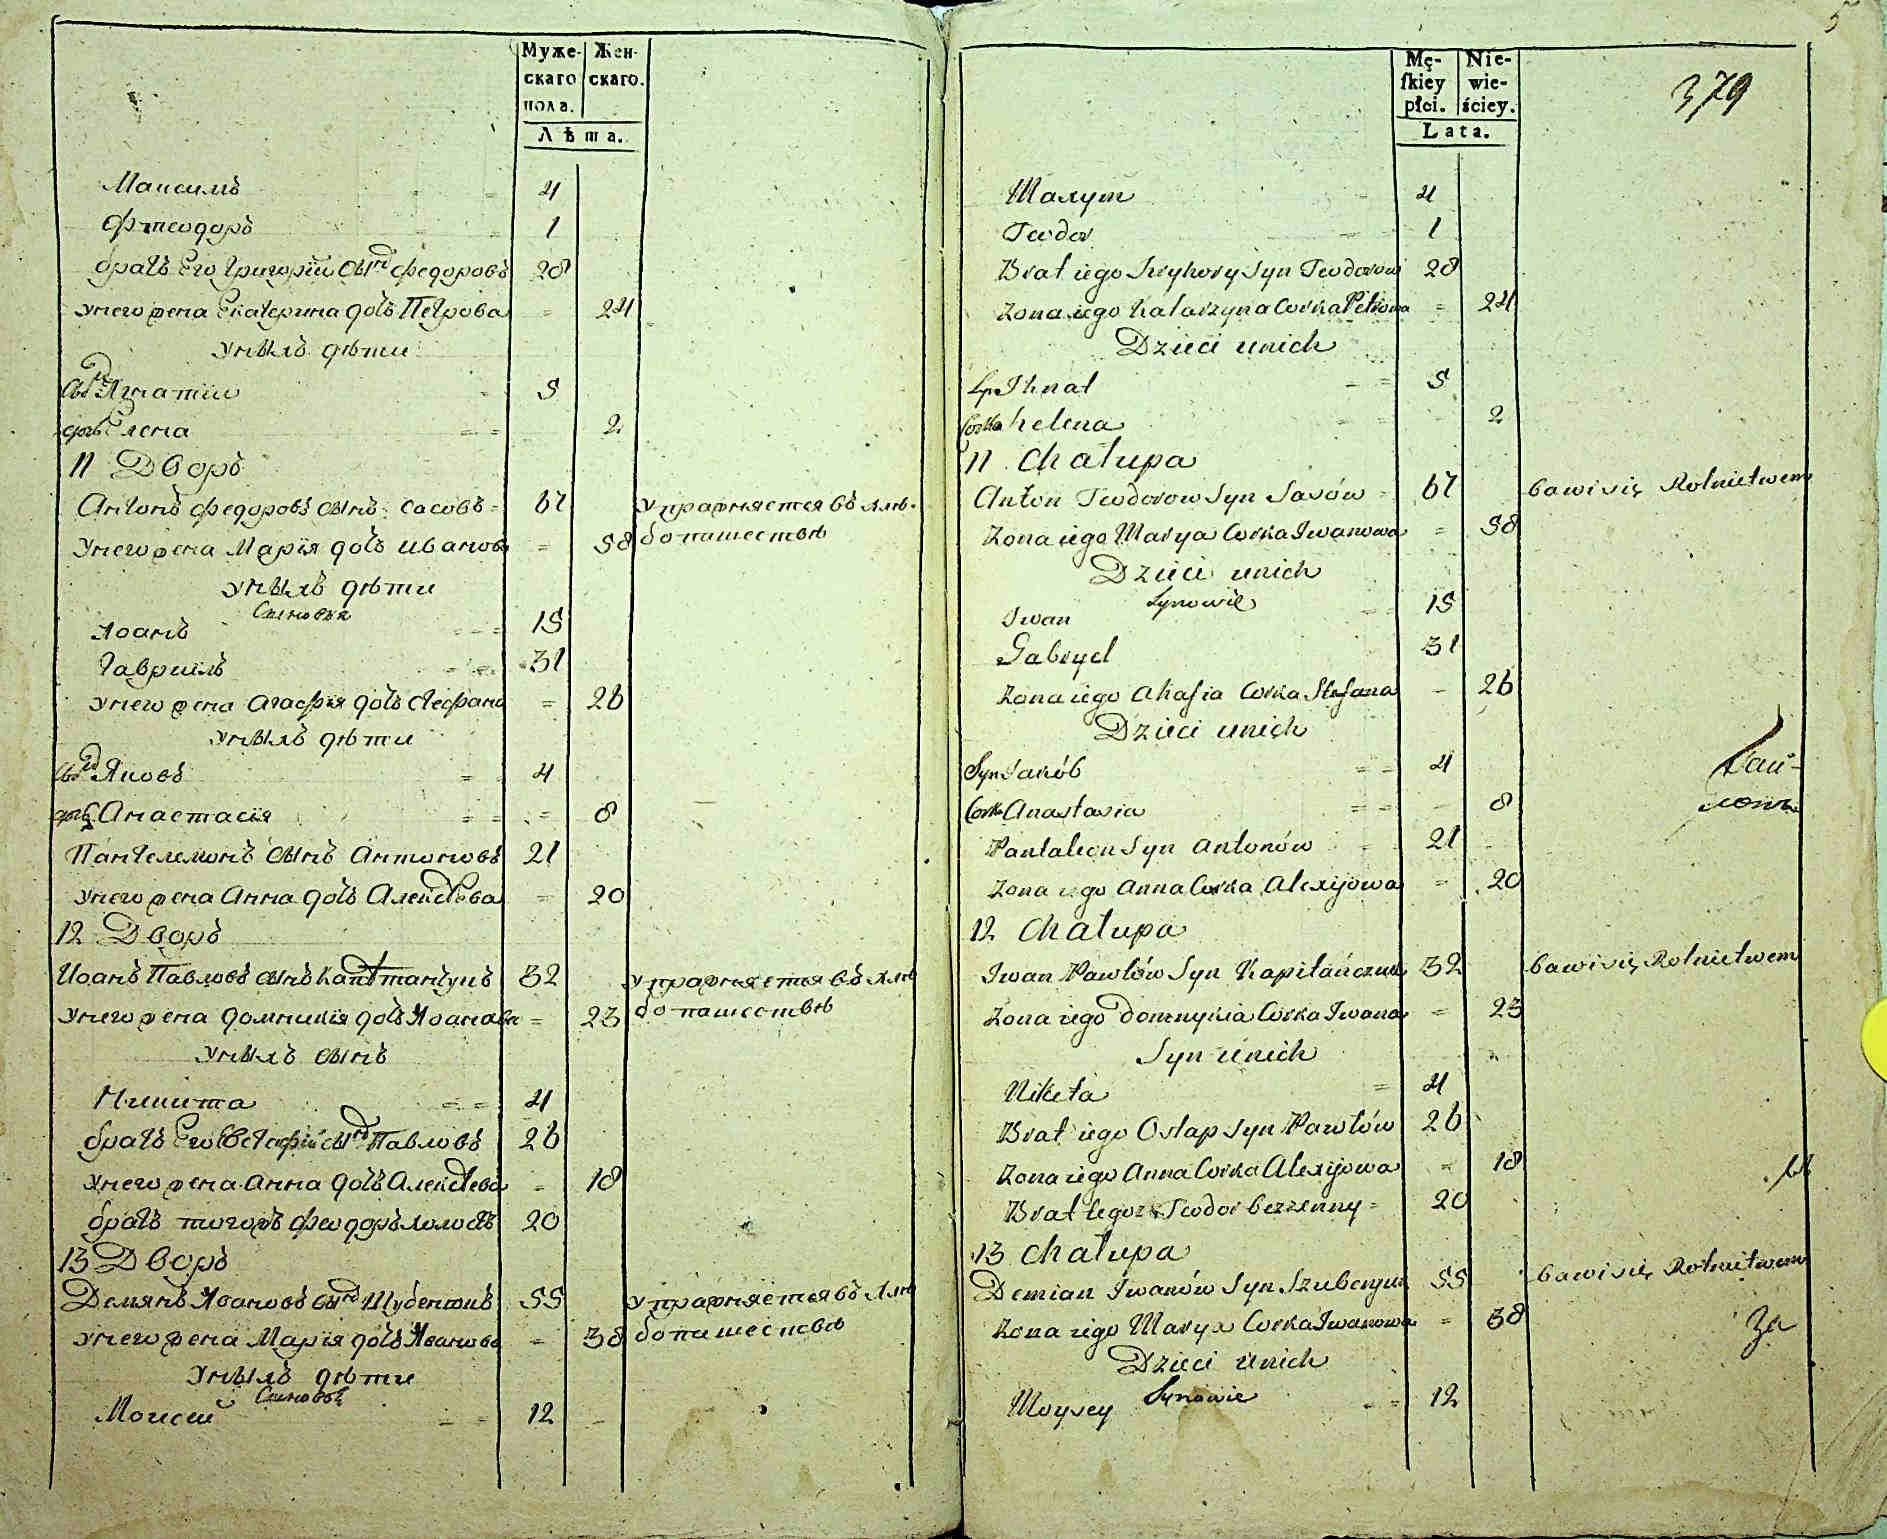 Муже- Жен-
скаго скаго.
пола.
Лѣта.
Максимъ = 4
Фтеодоръ = 1
братъ Его Григорiй сынъ Федоровъ 28
Унего жена Екатерина дочь Петрова = 24
Унихъ дѣти
сынъ Игнатiй = 5
дочь Елена = = 2
11 Дворъ
Антонъ Федоровъ сынъ Сасовъ = 67 Упражняется въ хлѣ-
Унего жена Марiя дочь Иванова = 58 бопашествѣ
Унихъ дѣти
Сыновья
Иоанъ = = 15
Гаврiилъ = = 31
Унего жена Агафiя дочь Стефана = 26
Унихъ дѣти
сынъ Яковъ = 4
дочь Анастасiя = = = 8
Пантелемонъ сынъ Антоновъ 21
Унего жена Анна дочь Алексѣева = 20
12 Дворъ
Иоанъ Павловъ сынъ Капитанчукъ 32 Упражняется въ хлѣ
Унего жена Домникiя дочь Иоанова = 23 бопашествѣ
Унихъ сынъ
Никита = = 4
братъ Его Евстафiй сынъ Павловъ 26
Унего жена Анна дочь Алексѣева = 18
братъ тогожъ Феодоръ холостъ 20
13 Дворъ
Демянъ Ивановъ сынъ Шубенюкъ 55 Упражняется въ хлѣ
Унего жена Марiя дочь Иванова = 38 бопашествѣ
Унихъ дѣти
Сыновья
Моисей = = 12
5
Mę- Nie-
ſkiey wie-
płci. ściey.
Lata.
379
Maxym 4
Teodor = 1
Brat iego Hryhory Syn Teodorow 28
Zona iego Katarzyna Corka Petrowa = 24
Dzieci unich
Sy Ihnat = = 5
Corka helena 2
11 Chałupa
Anton Teodorow Syn Sasów = 67 bawi się Rolnictwem
Zona iego Marya Corka Iwanowa = 58
Dzieci unich
Synowie
Iwan 15
Gabryel 31
Zona iego Ahafia Corka Stefana = 26
Dzieci unich
Syn Jakób = = 4
Corka Anastasia = = 8
Pantalion Syn Antonów 21
Zona iego Anna Corka Alexijowa = 20
12 Chałupa
Iwan Pawłów Syn Kapitańczuk 32 bawi się Rolnictwem
Zona iego Domnykia Corka Iwana = 23
Syn unich
Nikita = 4
Brat iego Ostap Syn Pawłów 26
Zona iego Anna Corka Alexijowa = 18
Brat tegoz Teodor bezzenny = 20
13 Chałupa
Demian Iwanów Syn Szubeniuk 55 bawi się Rolnictwem
Zona iego Marya Corka Iwanowa = 38
За
Dzieci unich
Synowie
Moysey = = 12